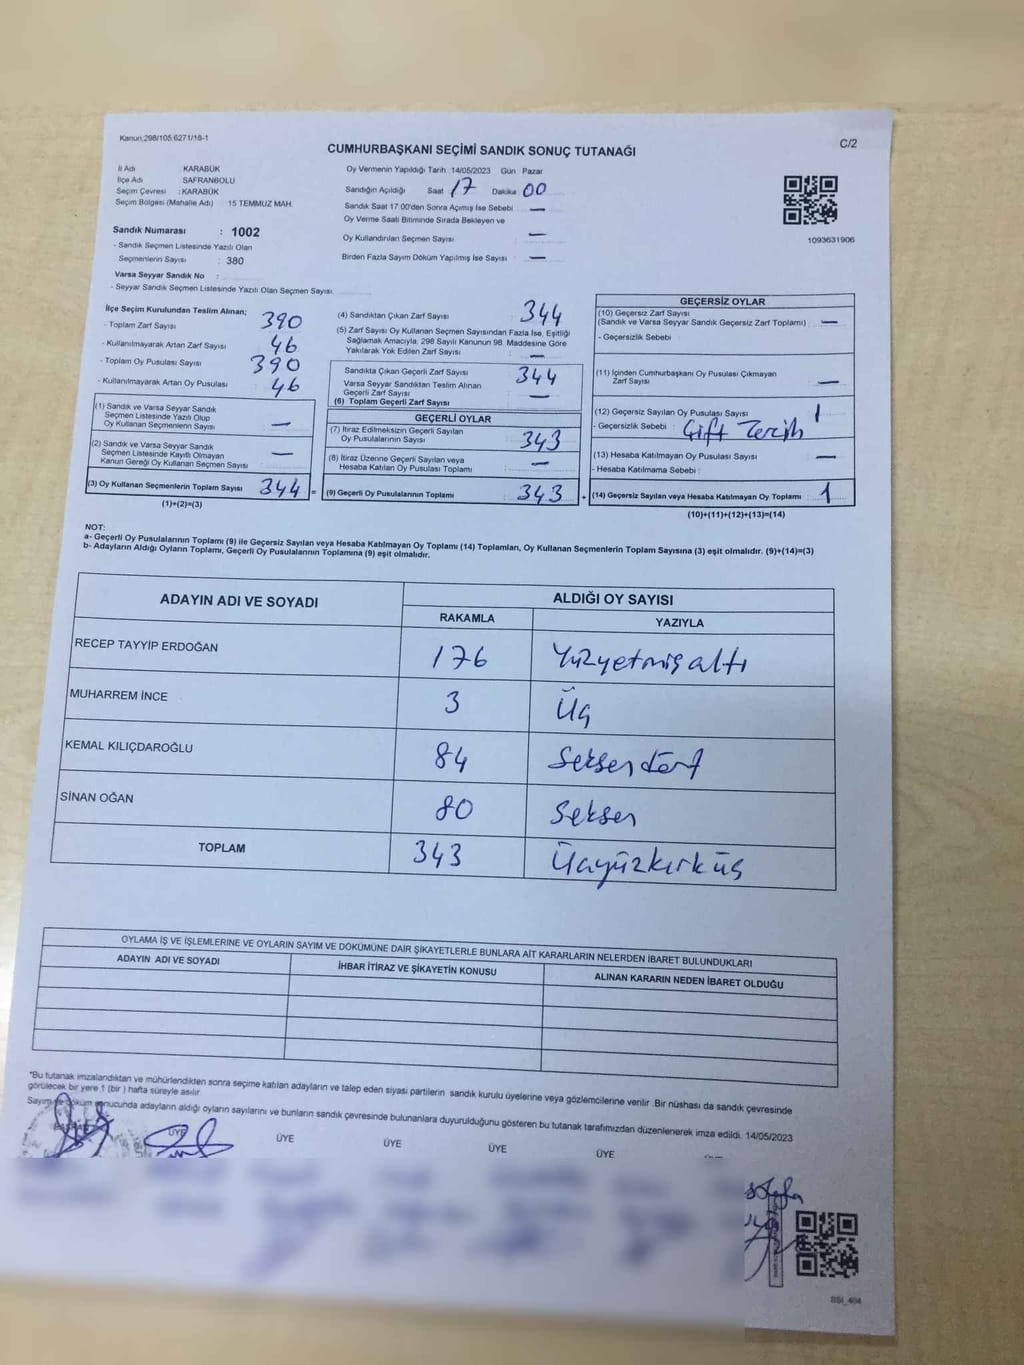 Kanun:298/105;6271/18-1
C/2
CUMHURBAŞKANI SEÇİMİ SANDIK SONUÇ TUTANAĞI
İl Adı KARABÜK
İlçe Adı SAFRANBOLU
Seçim Çevresi :KARABÜK
Seçim Bölgesi (Mahalle Adı) 15 TEMMUZ MAH.
Sandık Numarası : 1002
- Sandık Seçmen Listesinde Yazılı Olan
Seçmenlerin Sayısı : 380
Varsa Seyyar Sandık No :
- Seyyar Sandık Seçmen Listesinde Yazılı Olan Seçmen Sayısı
Oy Vermenin Yapıldığı Tarih: 14/05/2023 Gün: Pazar
Sandığın Açıldığı Saat 17 Dakika 00
Sandık Saat 17:00'den Sonra Açılmış İse Sebebi : —
Oy Verme Saati Bitiminde Sırada Bekleyen ve
Oy Kullandırılan Seçmen Sayısı : —
Birden Fazla Sayım Döküm Yapılmış İse Sayısı : —
1093631906
İlçe Seçim Kurulundan Teslim Alınan;
- Toplam Zarf Sayısı 390
- Kullanılmayarak Artan Zarf Sayısı 46
- Toplam Oy Pusulası Sayısı 390
- Kullanılmayarak Artan Oy Pusulası 46
(1) Sandık ve Varsa Seyyar Sandık
Seçmen Listesinde Yazılı Olup
Oy Kullanan Seçmenlerin Sayısı —
(2) Sandık ve Varsa Seyyar Sandık
Seçmen Listesinde Kayıtlı Olmayan
Kanun Gereği Oy Kullanan Seçmen Sayısı —
(3) Oy Kullanan Seçmenlerin Toplam Sayısı 344 =
(1)+(2)=(3)
(4) Sandıktan Çıkan Zarf Sayısı 344
(5) Zarf Sayısı Oy Kullanan Seçmen Sayısından Fazla İse, Eşitliği
Sağlamak Amacıyla, 298 Sayılı Kanunun 98. Maddesine Göre
Yakılarak Yok Edilen Zarf Sayısı : —
Sandıkta Çıkan Geçerli Zarf Sayısı 344
Varsa Seyyar Sandıktan Teslim Alınan
Geçerli Zarf Sayısı
(6) Toplam Geçerli Zarf Sayısı —
GEÇERLİ OYLAR
(7) İtiraz Edilmeksizin Geçerli Sayılan
Oy Pusulalarının Sayısı 343
(8) İtiraz Üzerine Geçerli Sayılan veya
Hesaba Katılan Oy Pusulası Toplamı —
(9) Geçerli Oy Pusulalarının Toplamı 343 +
GEÇERSİZ OYLAR
(10) Geçersiz Zarf Sayısı
(Sandık ve Varsa Seyyar Sandık Geçersiz Zarf Toplamı) —
- Geçersizlik Sebebi
(11) İçinden Cumhurbaşkanı Oy Pusulası Çıkmayan
Zarf Sayısı —
(12) Geçersiz Sayılan Oy Pusulası Sayısı 1
- Geçersizlik Sebebi : Çift Tercih
(13) Hesaba Katılmayan Oy Pusulası Sayısı —
- Hesaba Katılmama Sebebi :
(14) Geçersiz Sayılan veya Hesaba Katılmayan Oy Toplamı : 1
(10)+(11)+(12)+(13)=(14)
NOT:
a- Geçerli Oy Pusulalarının Toplamı (9) ile Geçersiz Sayılan veya Hesaba Katılmayan Oy Toplamı (14) Toplamları, Oy Kullanan Seçmenlerin Toplam Sayısına (3) eşit olmalıdır. (9)+(14)=(3)
b- Adayların Aldığı Oyların Toplamı, Geçerli Oy Pusulalarının Toplamına (9) eşit olmalıdır.
ADAYIN ADI VE SOYADI ALDIĞI OY SAYISI
RAKAMLA YAZIYLA
RECEP TAYYİP ERDOĞAN 176 Yüzyetmişaltı
MUHARREM İNCE 3 Üç
KEMAL KILIÇDAROĞLU 84 Seksendört
SİNAN OĞAN 80 Seksen
TOPLAM 343 Üçyüzkırküç
OYLAMA İŞ VE İŞLEMLERİNE VE OYLARIN SAYIM VE DÖKÜMÜNE DAİR ŞİKAYETLERLE BUNLARA AİT KARARLARIN NELERDEN İBARET BULUNDUKLARI
ADAYIN ADI VE SOYADI İHBAR İTİRAZ VE ŞİKAYETİN KONUSU ALINAN KARARIN NEDEN İBARET OLDUĞU
*Bu tutanak imzalandıktan ve mühürlendikten sonra seçime katılan adayların ve talep eden siyasi partilerin sandık kurulu üyelerine veya gözlemcilerine verilir. Bir nüshası da sandık çevresinde
görülecek bir yere 1 (bir) hafta süreyle asılır
Sayım ve döküm sonucunda adayların aldığı oyların sayılarını ve bunların sandık çevresinde bulunanlara duyurulduğunu gösteren bu tutanak tarafımızdan düzenlenerek imza edildi. 14/05/2023
BAŞKAN ÜYE ÜYE ÜYE ÜYE ÜYE